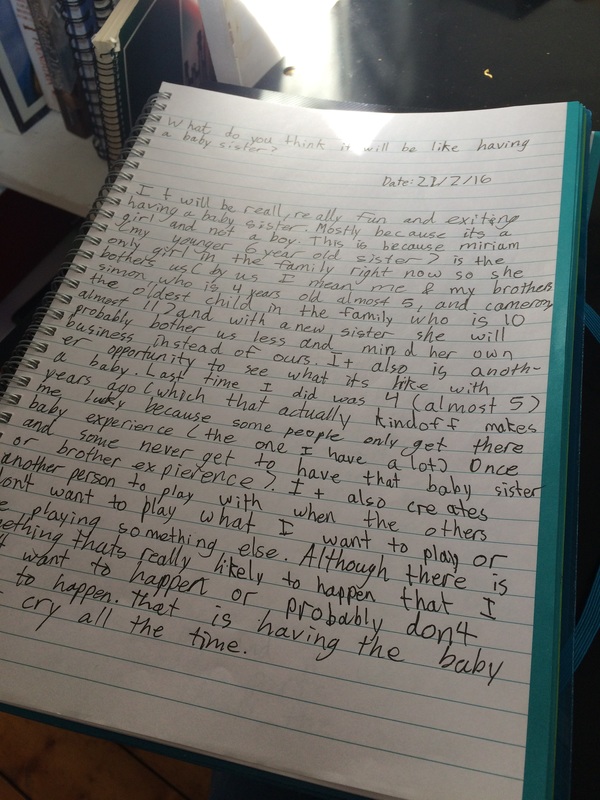 What do you think it will be like having
a baby sister?
Date: 21/2/16
It will be reall, really fun and exiting
having a baby sister. Mostly because its a
girl and not a boy. This is because miriam
(my younger 6 year old sister) is the
only girl in the family right now so she
bothers us( by us I mean me & my brothers
simon, who is 4 years old almost 5, and cameron
the oldest child in the family who is 10
almost 11) and with a new sister she will
probably bother us less and mind her own
business instead of ours. It also is anoth-
er opportunity to see what its like with
a baby. Last time I did was 4 (almost 5)
years ago (which that actually kindoff makes
me lucky because some people only get there
baby experience (the one I have a lot) Once
and some never get to have that baby sister
or brother expierence). It also creates
another person to play with when the others
don't want to play what I want to play or
playing something else. Although there is
something thats really likely to happen that I
want to happen or probably don4
to happen. that is having the baby
cry all the time.